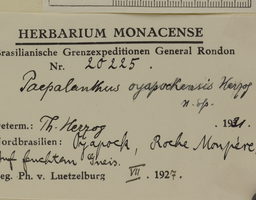 HERBARIUM MONACENSE
Brasilianische Grenzexpeditionen General Rondon
Nr. 20225.
Paepalanthus oyapockensis Herzog
n. sp.
eterm.: Th. Herzog 1931
Nordbrasilien: Oyapock, Roche Monpère
Auf feuchtem Gneis.
eg. Ph. v. Luetzelburg VII. 1927.